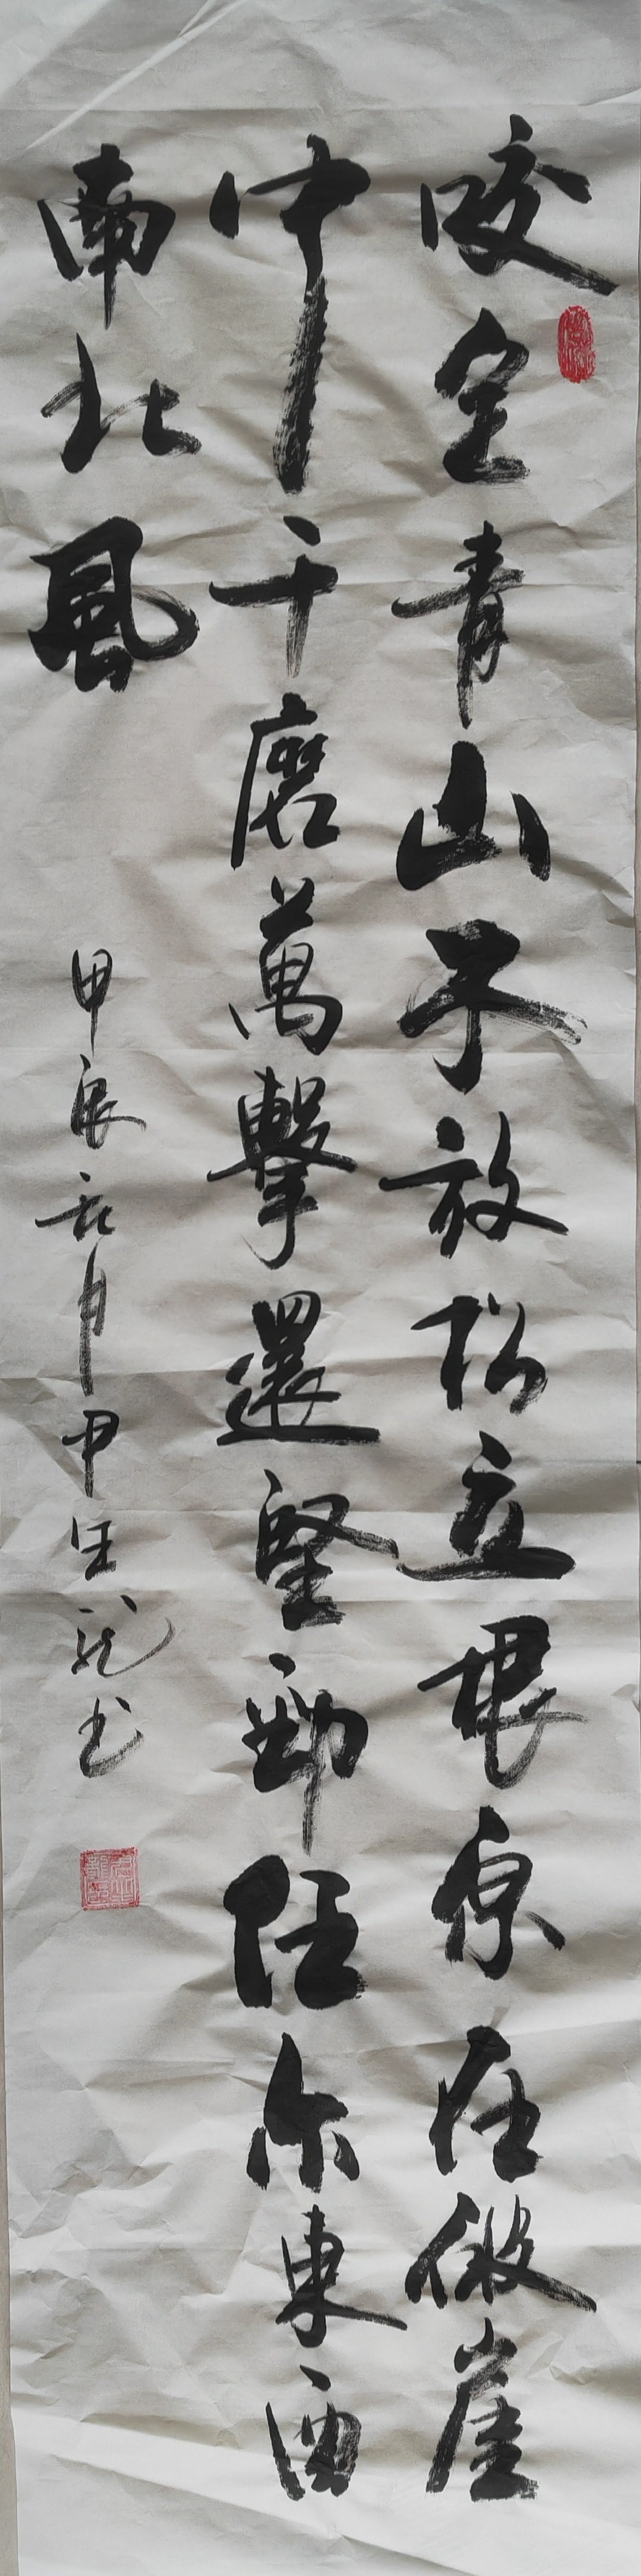 咬定青山不放松立根原在破崖
中千磨萬擊還堅勁任尔東西
南北風
甲辰 月 玉龍书